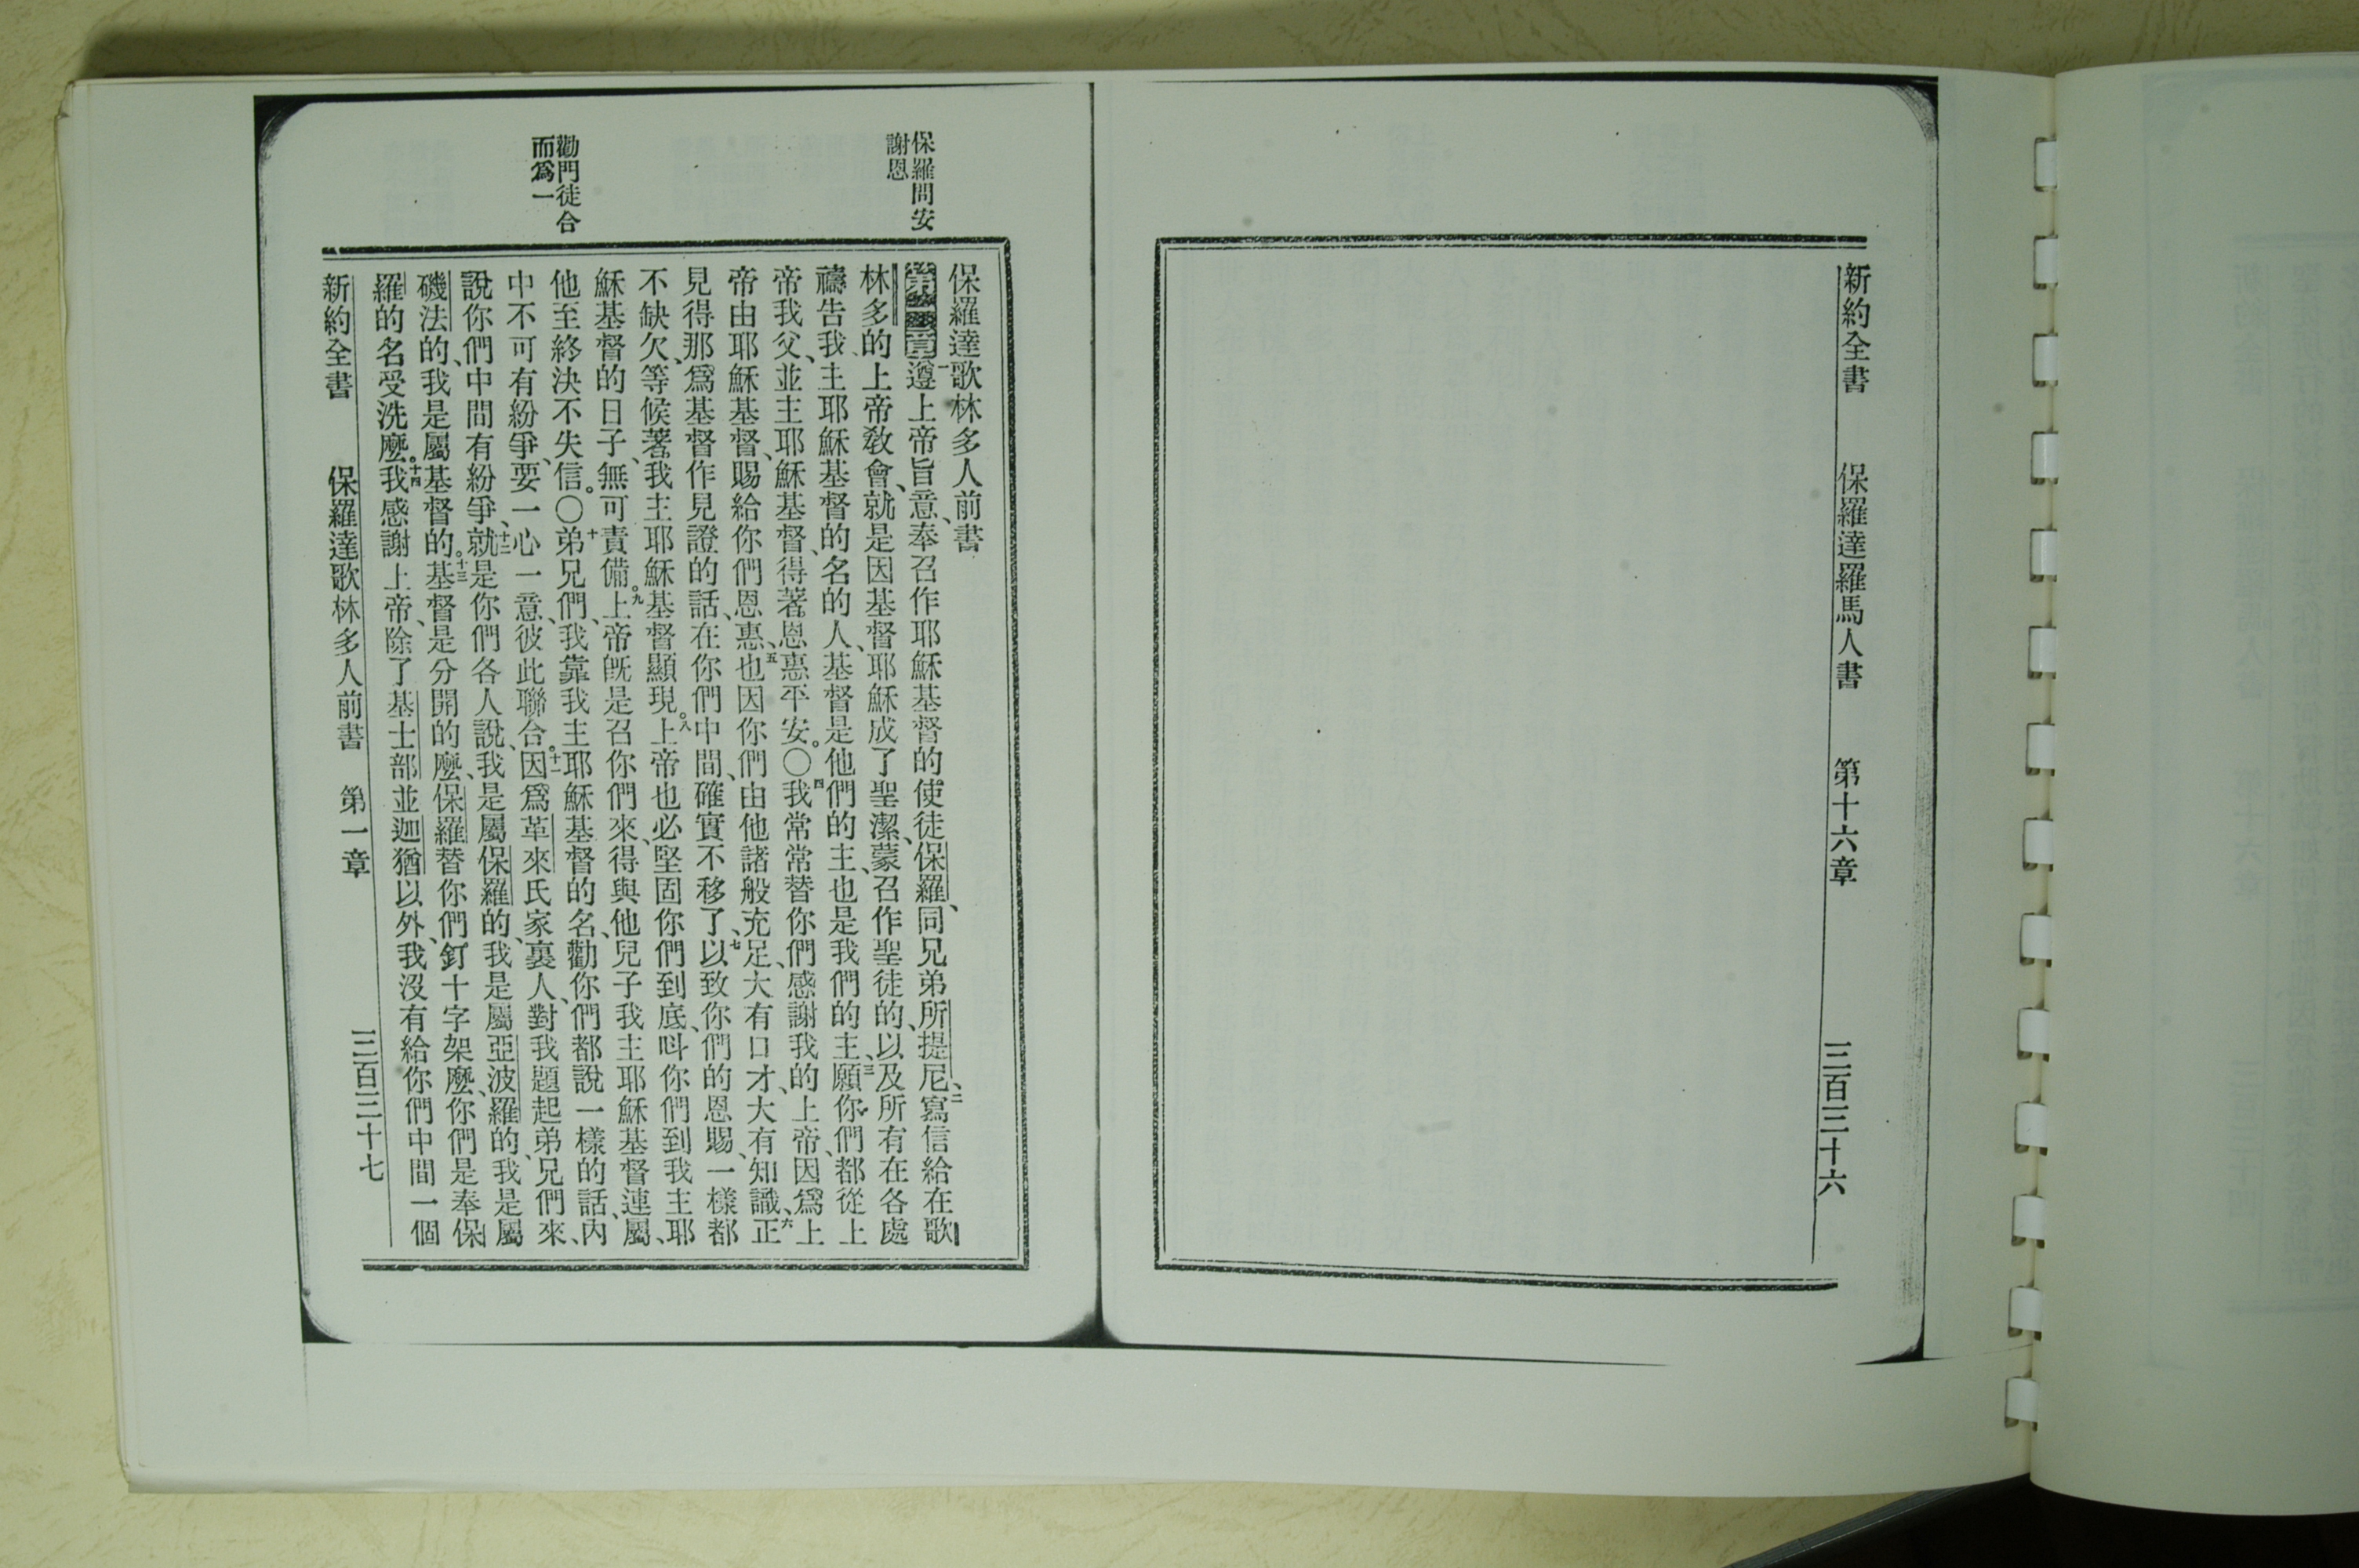 新約全書 保羅達羅馬人書 第十六章 三百三十六
保羅問安
謝恩
勸門徒合
而爲一
保羅達歌林多人前書
第一章一遵上帝旨意、奉召作耶穌基督的使徒保羅、同兄弟所提尼、二寫信給在歌
林多的上帝敎會、就是因基督耶穌成了聖潔、蒙召作聖徒的、以及所有在各處
禱告我主耶穌基督的名的人、基督是他們的主、也是我們的主、三願你們都從上
帝我父、並主耶穌基督、得著恩惠平安。〇四我常常替你們感謝我的上帝、因爲上
帝由耶穌基督、賜給你們恩惠、五也因你們由他諸般充足、大有口才、大有知識、六正
見得那爲基督作見證的話、在你們中間、確實不移了、七以致你們的恩賜、一樣都
不缺欠、等候著我主耶穌基督顯現。八上帝也必堅固你們到底、呌你們到我主耶
穌基督的日子、無可責備。九上帝旣是召你們來、得與他兒子我主耶穌基督連屬、
他至終決不失信。〇十弟兄們、我靠我主耶穌基督的名、勸你們都說一樣的話、內
中不可有紛爭、要一心一意、彼此聯合。十一因爲革來氏家裏人、對我題起弟兄們來、
說你們中間有紛爭、十二就是你們各人說、我是屬保羅的、我是屬亞波羅的、我是屬
磯法的、我是屬基督的。十三基督是分開的麼、保羅替你們釘十字架麼、你們是奉保
羅的名受洗麼。十四我感謝上帝、除了基士部並迦猶以外、我沒有給你們中間一個
新約全書 保羅達歌林多人前書 第一章 三百三十七